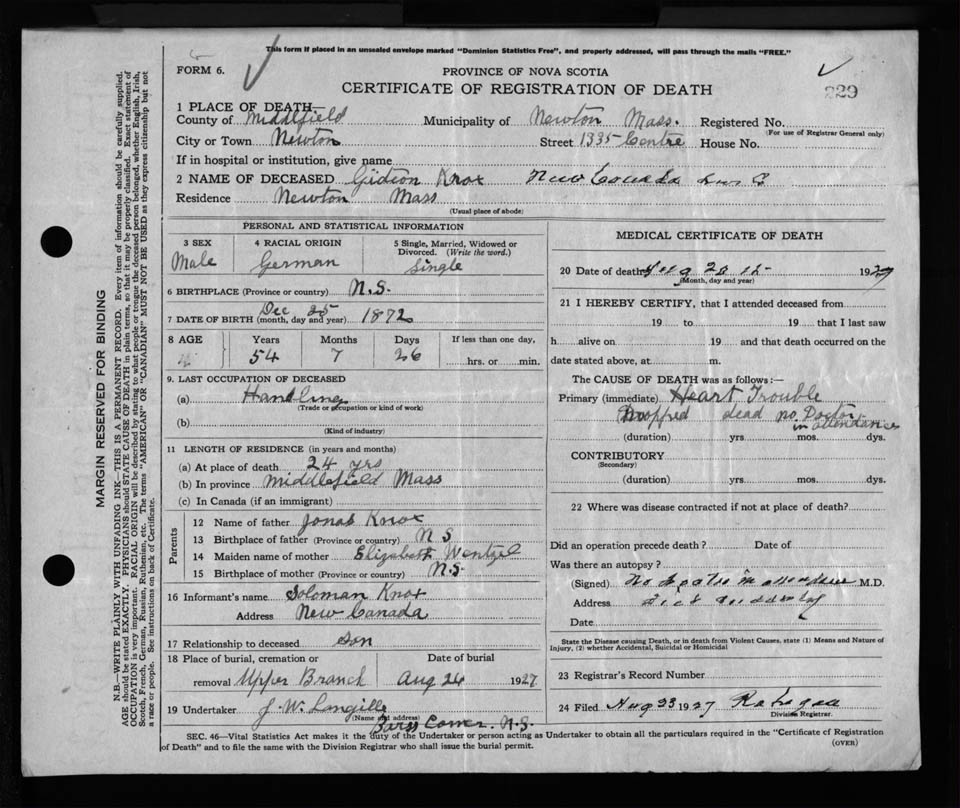 This form if placed in an unsealed envelope marked "Dominion Statistics Free", and properly addressed, will pass through the mails "FREE."
FORM 6.
PROVINCE OF NOVA SCOTIA
CERTIFICATE OF REGISTRATION OF DEATH
229
1 PLACE OF DEATH—
County of Middlfield Municipality of Newton Mass. Registered No.
(For use of Registrar General only)
City or Town Newton Street 1335 Centre House No.
If in hospital or institution, give name
2 NAME OF DECEASED Gidson Knox New Canada
Residence Newton Mass
(Usual place of abode)
PERSONAL AND STATISTICAL INFORMATION
3 SEX 4 RACIAL ORIGIN 5 Single, Married, Widowed or Divorced. (Write the word.)
Male German Single
6 BIRTHPLACE (Province or country) N.S.
7 DATE OF BIRTH (month, day and year) Dec 25 1872
8 AGE Years Months Days If less than one day,
54 7 26 hrs. or min.
9. LAST OCCUPATION OF DECEASED
(a) Handling
(Trade or occupation or kind of work)
(b)
(Kind of industry)
11 LENGTH OF RESIDENCE (in years and months)
(a) At place of death 24 yrs
(b) In province Middlefield Mass
(c) In Canada (if an immigrant)
Parents
12 Name of father Jonas Knox
13 Birthplace of father (Province or country) N S
14 Maiden name of mother Elizabeth Wentzel
15 Birthplace of mother (Province or country) N.S.
16 Informant's name Soloman Knox
Address New Canada
17 Relationship to deceased Son
18 Place of burial, cremation or Date of burial
removal Upper Branch Aug 24 1927
19 Undertaker J. W. Langille
(Name and address)
Corner. N.S.
MEDICAL CERTIFICATE OF DEATH
20 Date of death Aug 20 1927
(Month, day and year)
21 I HEREBY CERTIFY, that I attended deceased from
19 to 19 that I last saw
h alive on 19 and that death occurred on the
date stated above, at m.
The CAUSE OF DEATH was as follows:—
Primary (immediate) Heart Trouble
Dropped dead no Doctor
in attendance
(duration) yrs. mos. dys.
CONTRIBUTORY
(Secondary)
(duration) yrs. mos. dys.
22 Where was disease contracted if not at place of death?
Did an operation precede death? Date of
Was there an autopsy?
(Signed) No M.D.
Address
Date
State the Disease causing Death, or in death from Violent Causes, state (1) Means and Nature of
Injury, (2) whether Accidental, Suicidal or Homicidal
23 Registrar's Record Number
24 Filed Aug 23 1927
Division Registrar.
SEC. 46—Vital Statistics Act makes it the duty of the Undertaker or person acting as Undertaker to obtain all the particulars required in the "Certificate of Registration
of Death" and to file the same with the Division Registrar who shall issue the burial permit.
(OVER)
MARGIN RESERVED FOR BINDING
N.B.—WRITE PLAINLY, WITH UNFADING INK—THIS IS A PERMANENT RECORD. Every item of information should be carefully supplied.
AGE should be stated EXACTLY. PHYSICIANS should STATE CAUSE OF DEATH in plain terms, so that it may be properly classified. Exact statement of
OCCUPATION is very important. RACIAL ORIGIN will be described by stating to what people or tongue the deceased person belonged, whether English, Irish,
Scotch, French, German, Russian, Ruthenian, etc. The terms "AMERICAN" OR "CANADIAN" MUST NOT BE USED as they express citizenship but not
a race or people. See instructions on back of Certificate.